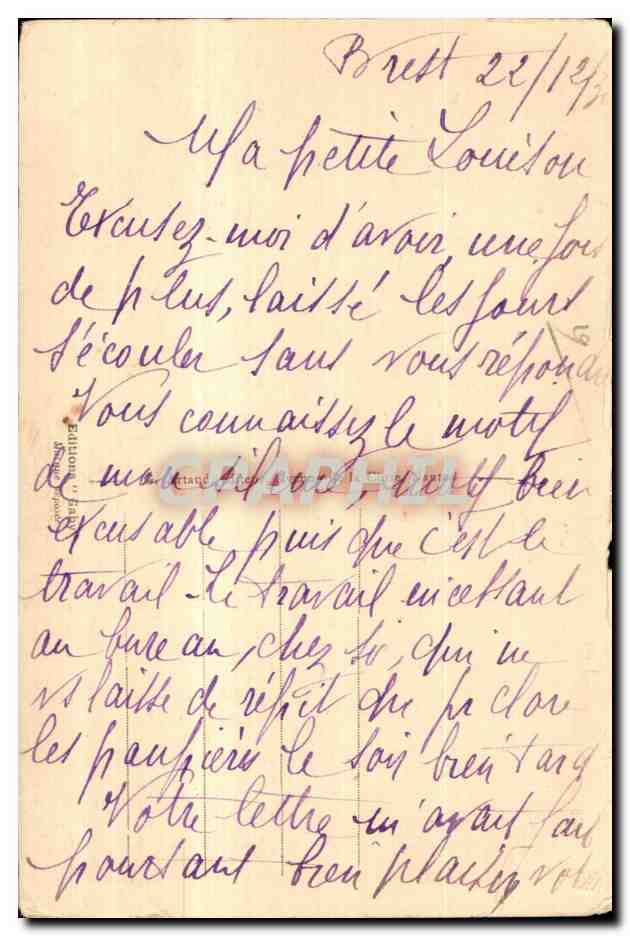 Brest 22/12/3
Ma petite Louison
Excusez-moi d'avoir, une fois
de plus, laissé les jours
s'écouler sans vous répondre
Vous connaissez le motif
de mon silence, motif bien
excusable puisque c'est le
travail - Le travail incessant
au bureau, chez soi, qui ne
vs laisse de répit que pr clore
les paupières le soir bien tard
Votre lettre m'avait fait
pourtant bien plaisir, votre
Editions "Gaby"
CPAPHIL